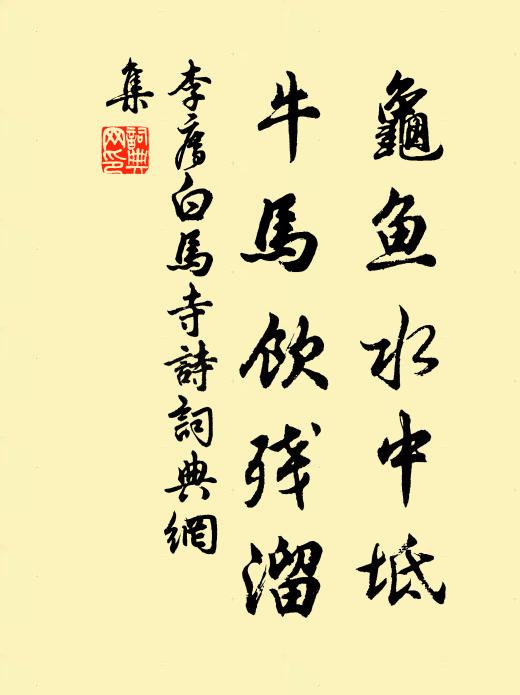 龜鱼水中坻
牛馬飲残溜
李廌白馬寺詩詞典網
集
詞典网印